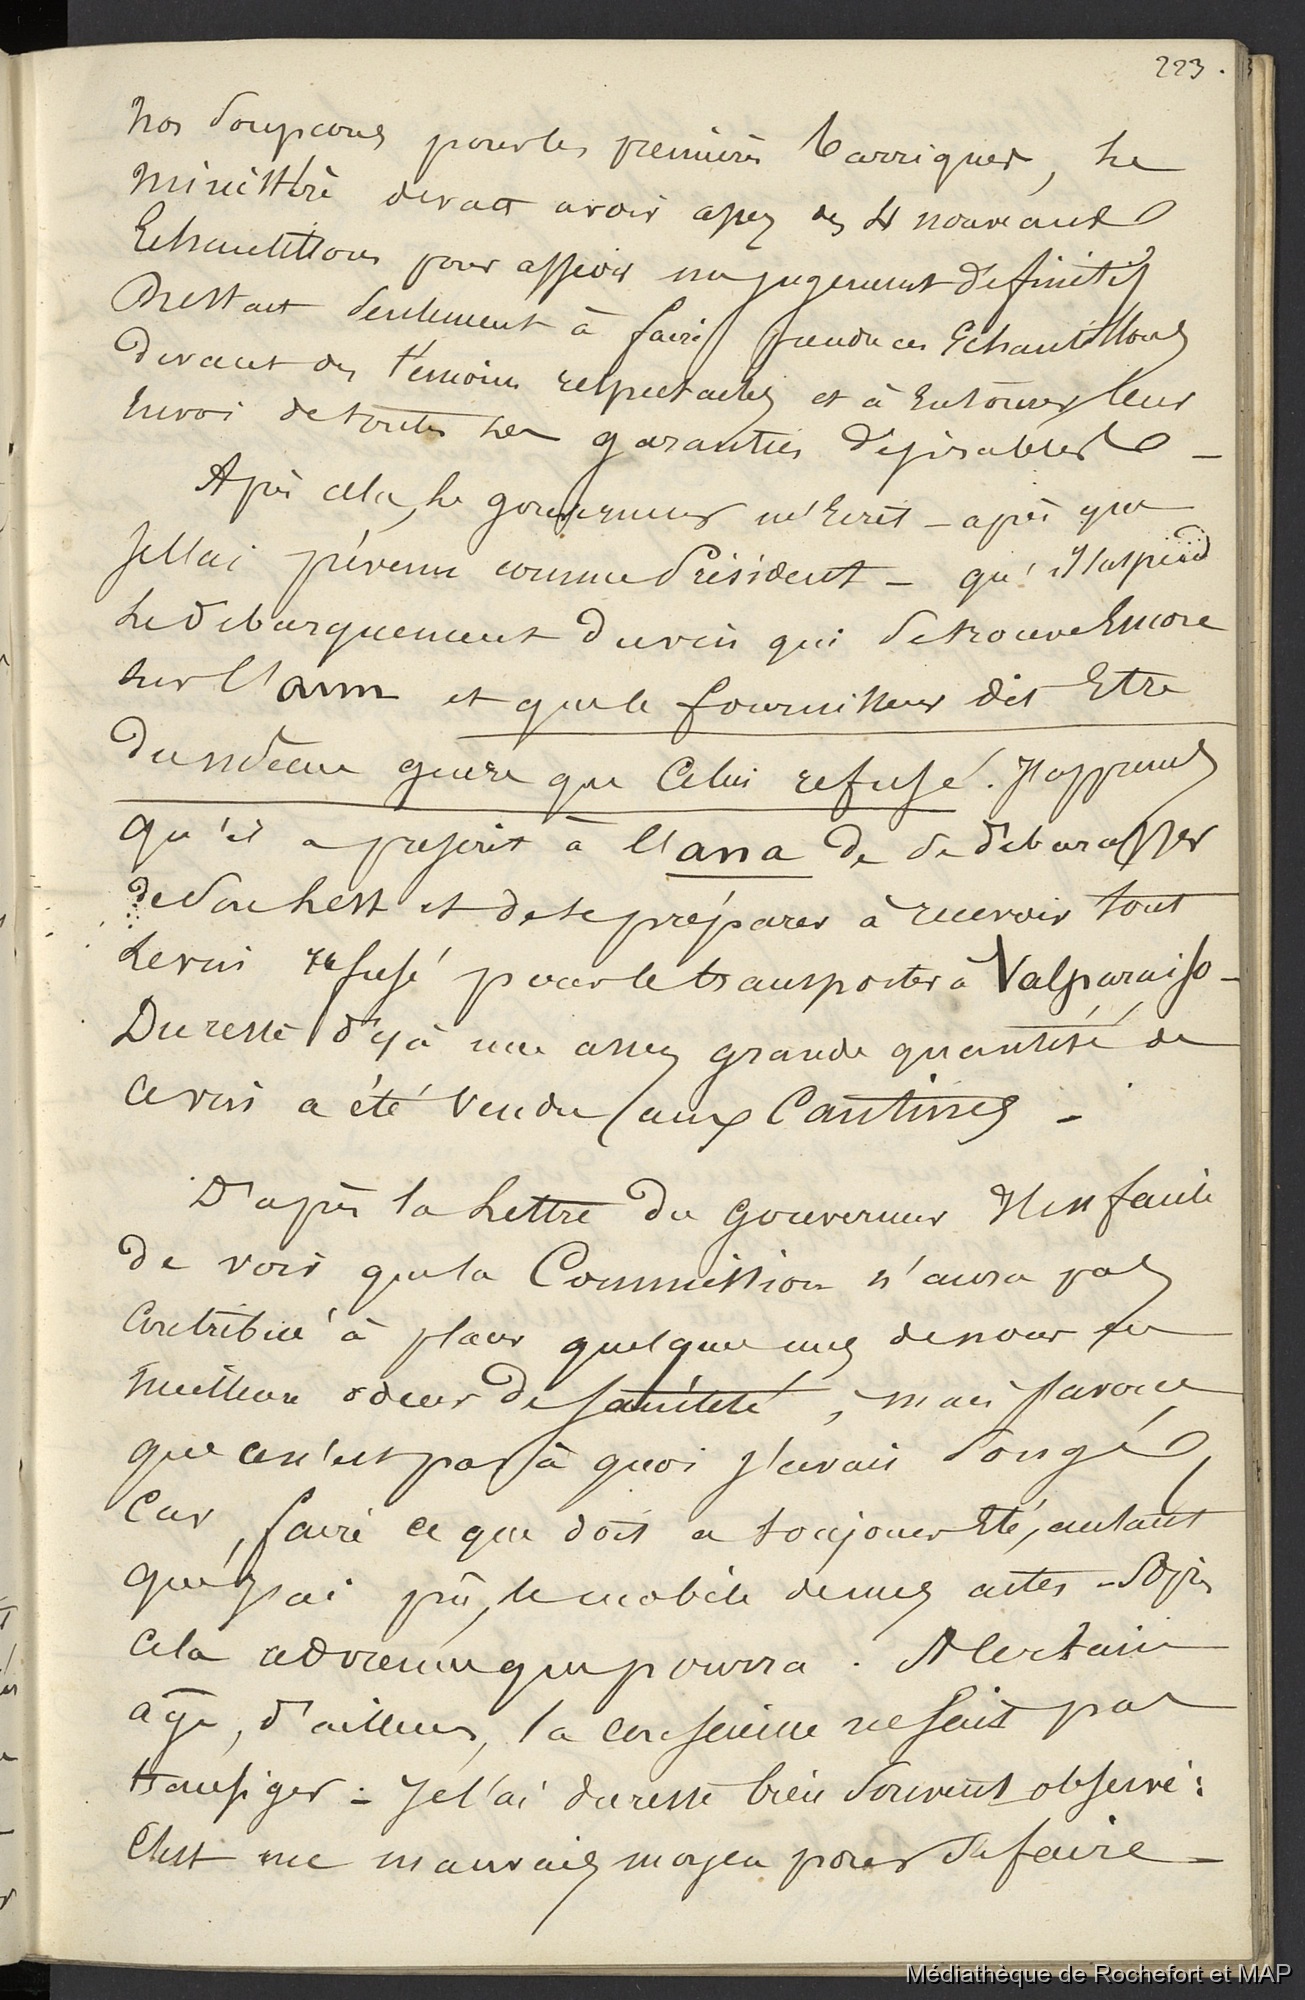 223.
nos soupçons pour les premières barriques, le
ministère devait avoir assez des 4 nouveaux
Echantillons pour asseoir un jugement définitif
Restait seulement à faire prendre ces Echantillons
devant des témoins respectables et à Entourer leur
Envoi de toutes les garanties désirables —
Après cela, le gouverneur m'Ecrit — après que
Je l'ai prévenu comme Président — qu'Il suspend
le débarquement du vin qui se trouve Encore
sur l' et que le fournisseur dit Etre
du même genre que Celui refusé. J'apprends
qu'il a prescrit à l' de se débarasser
de son lest et de se préparer à recevoir tout
le vin refusé pour le transporter à Valparaiso —
Du reste déjà une assez grande quantité de
ce vin a été vendu aux Cantines —
D'après la lettre du Gouverneur Il est facile
de voir que la Commission n'aura pas
Contribué à placer quelques uns de nous en
meilleure odeur de sainteté, mais J'avoue
que ce n'est pas à quoi J'avais songé,
Car, faire ce que doit a toujours Eté, autant
que J'ai pû, le mobile de mes actes — Après
cela advienne que pourra. A certain
âge, d'ailleurs, la conscience ne sait pas
transiger — Je l'ai du reste bien souvent observé :
C'est un mauvais moyen pour faire —
Médiathèque de Rochefort et MAP